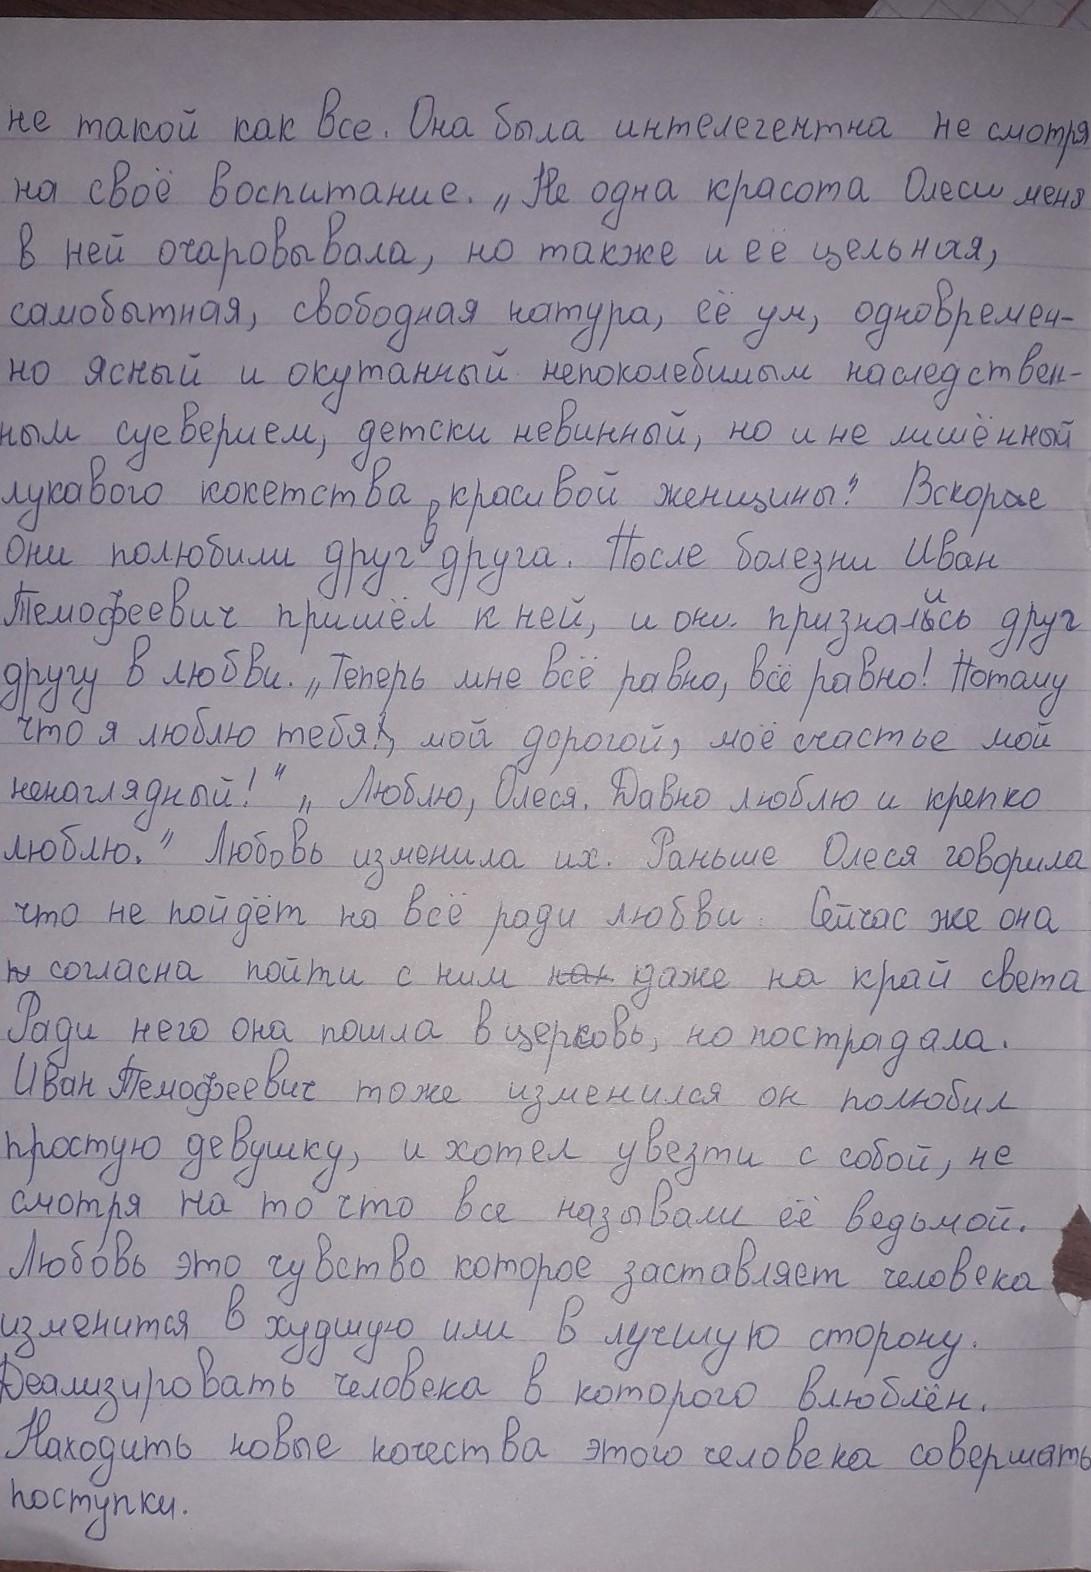 не такой как все. Она была интелегентна не смотря
на своё воспитание. „Не одна красота Олеси меня
в ней очаровывала, но также и её цельная,
самобытная, свободная натура, её ум, одновремен-
но ясный и окутанный непоколебимым наследствен-
ным суеверием, детски невинный, но и не лишённый
лукавого кокетства красивой женщины." Вскоре
они полюбили друг в друга. После болезни Иван
Темофеевич пришёл к ней, и они признались друг
другу в любви. „Теперь мне всё равно, всё равно! Потому
что я люблю тебя, мой дорогой, моё счастье мой
ненаглядный!" „Люблю, Олеся. Давно люблю и крепко
люблю." Любовь изменила их. Раньше Олеся говорила
что не пойдёт на всё ради любви. Сейчас же она
согласна пойти с ним даже на край света
Ради него она пошла в церковь, но пострадала.
Иван Темофеевич тоже изменился он полюбил
простую девушку, и хотел увезти с собой, не
смотря на то что все называли её ведьмой.
Любовь это чувство которое заставляет человека
изменится в худшую или в лучшую сторону.
Деализировать человека в которого влюблён.
Находить новые качества этого человека совершать
поступки.